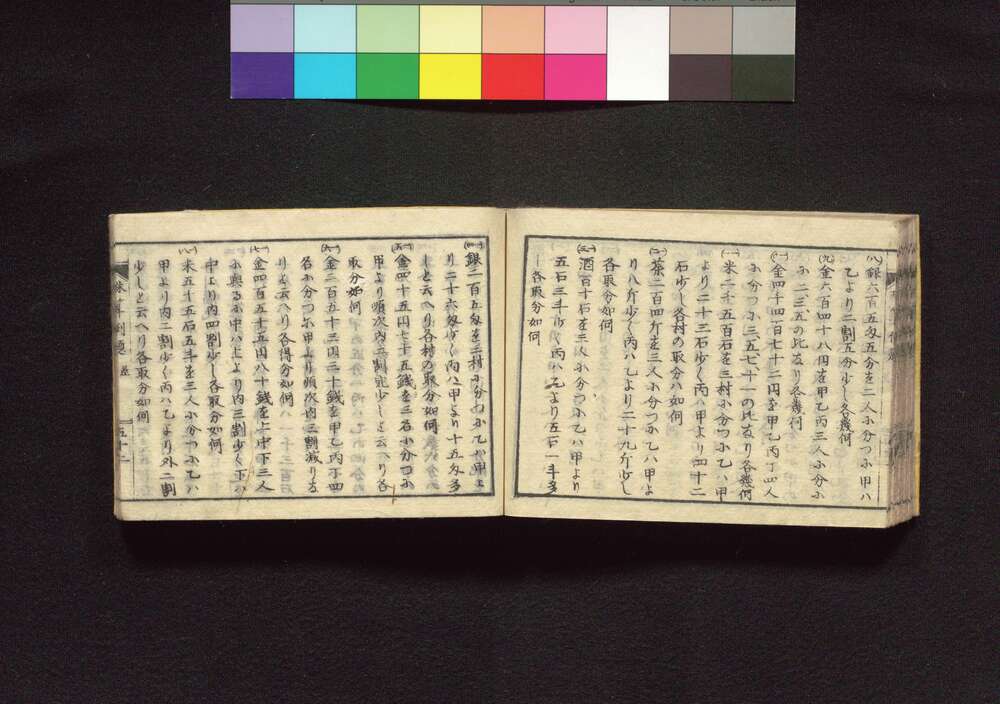 (八)銀六百五匁五分を二人小分つ小甲ハ
乙より二割五分少し各幾何
(九)金六百四十八円を甲乙丙三人小分小
小二三五の比なり各幾何
金四千四百七十二円を甲乙丙丁四人
小分つ小三五七十一の比なり各幾何
米二千五百石を三村小分つ小乙ハ甲
より二十三石少く丙ハ甲より四十二
石少し各村の取分ハ如何
茶二百四斤を三人小分つ小乙ハ甲よ
り八斤少く丙ハ乙より二十九斤少し
各取分如何
酒百十石を三人小分つ小乙ハ甲より
五石三斗少く丙ハ乙より五石一斗多
し各取分如何
銀二百五匁を三村小分つ小乙ハ甲よ
り二十六匁少く丙ハ甲より十五匁多
しと云へり各村の取分如何
金四十五円七十五銭を三名小分つ小
甲より順次内二割宛少しと云へり各
取分如何
金三百五十三円三十銭を甲乙丙丁四
名小分つ小甲より順次内三割減りる
りと云へり各得分如何
金四百五十五円八十銭を上中下三人
小與る小中ハ上より内三割少く下ハ
中より内四割少し各取分如何
米五十五石五斗を三人小分つ小乙ハ
甲より内二割少く丙ハ乙より外二割
少しと云へり各取分如何
五十二